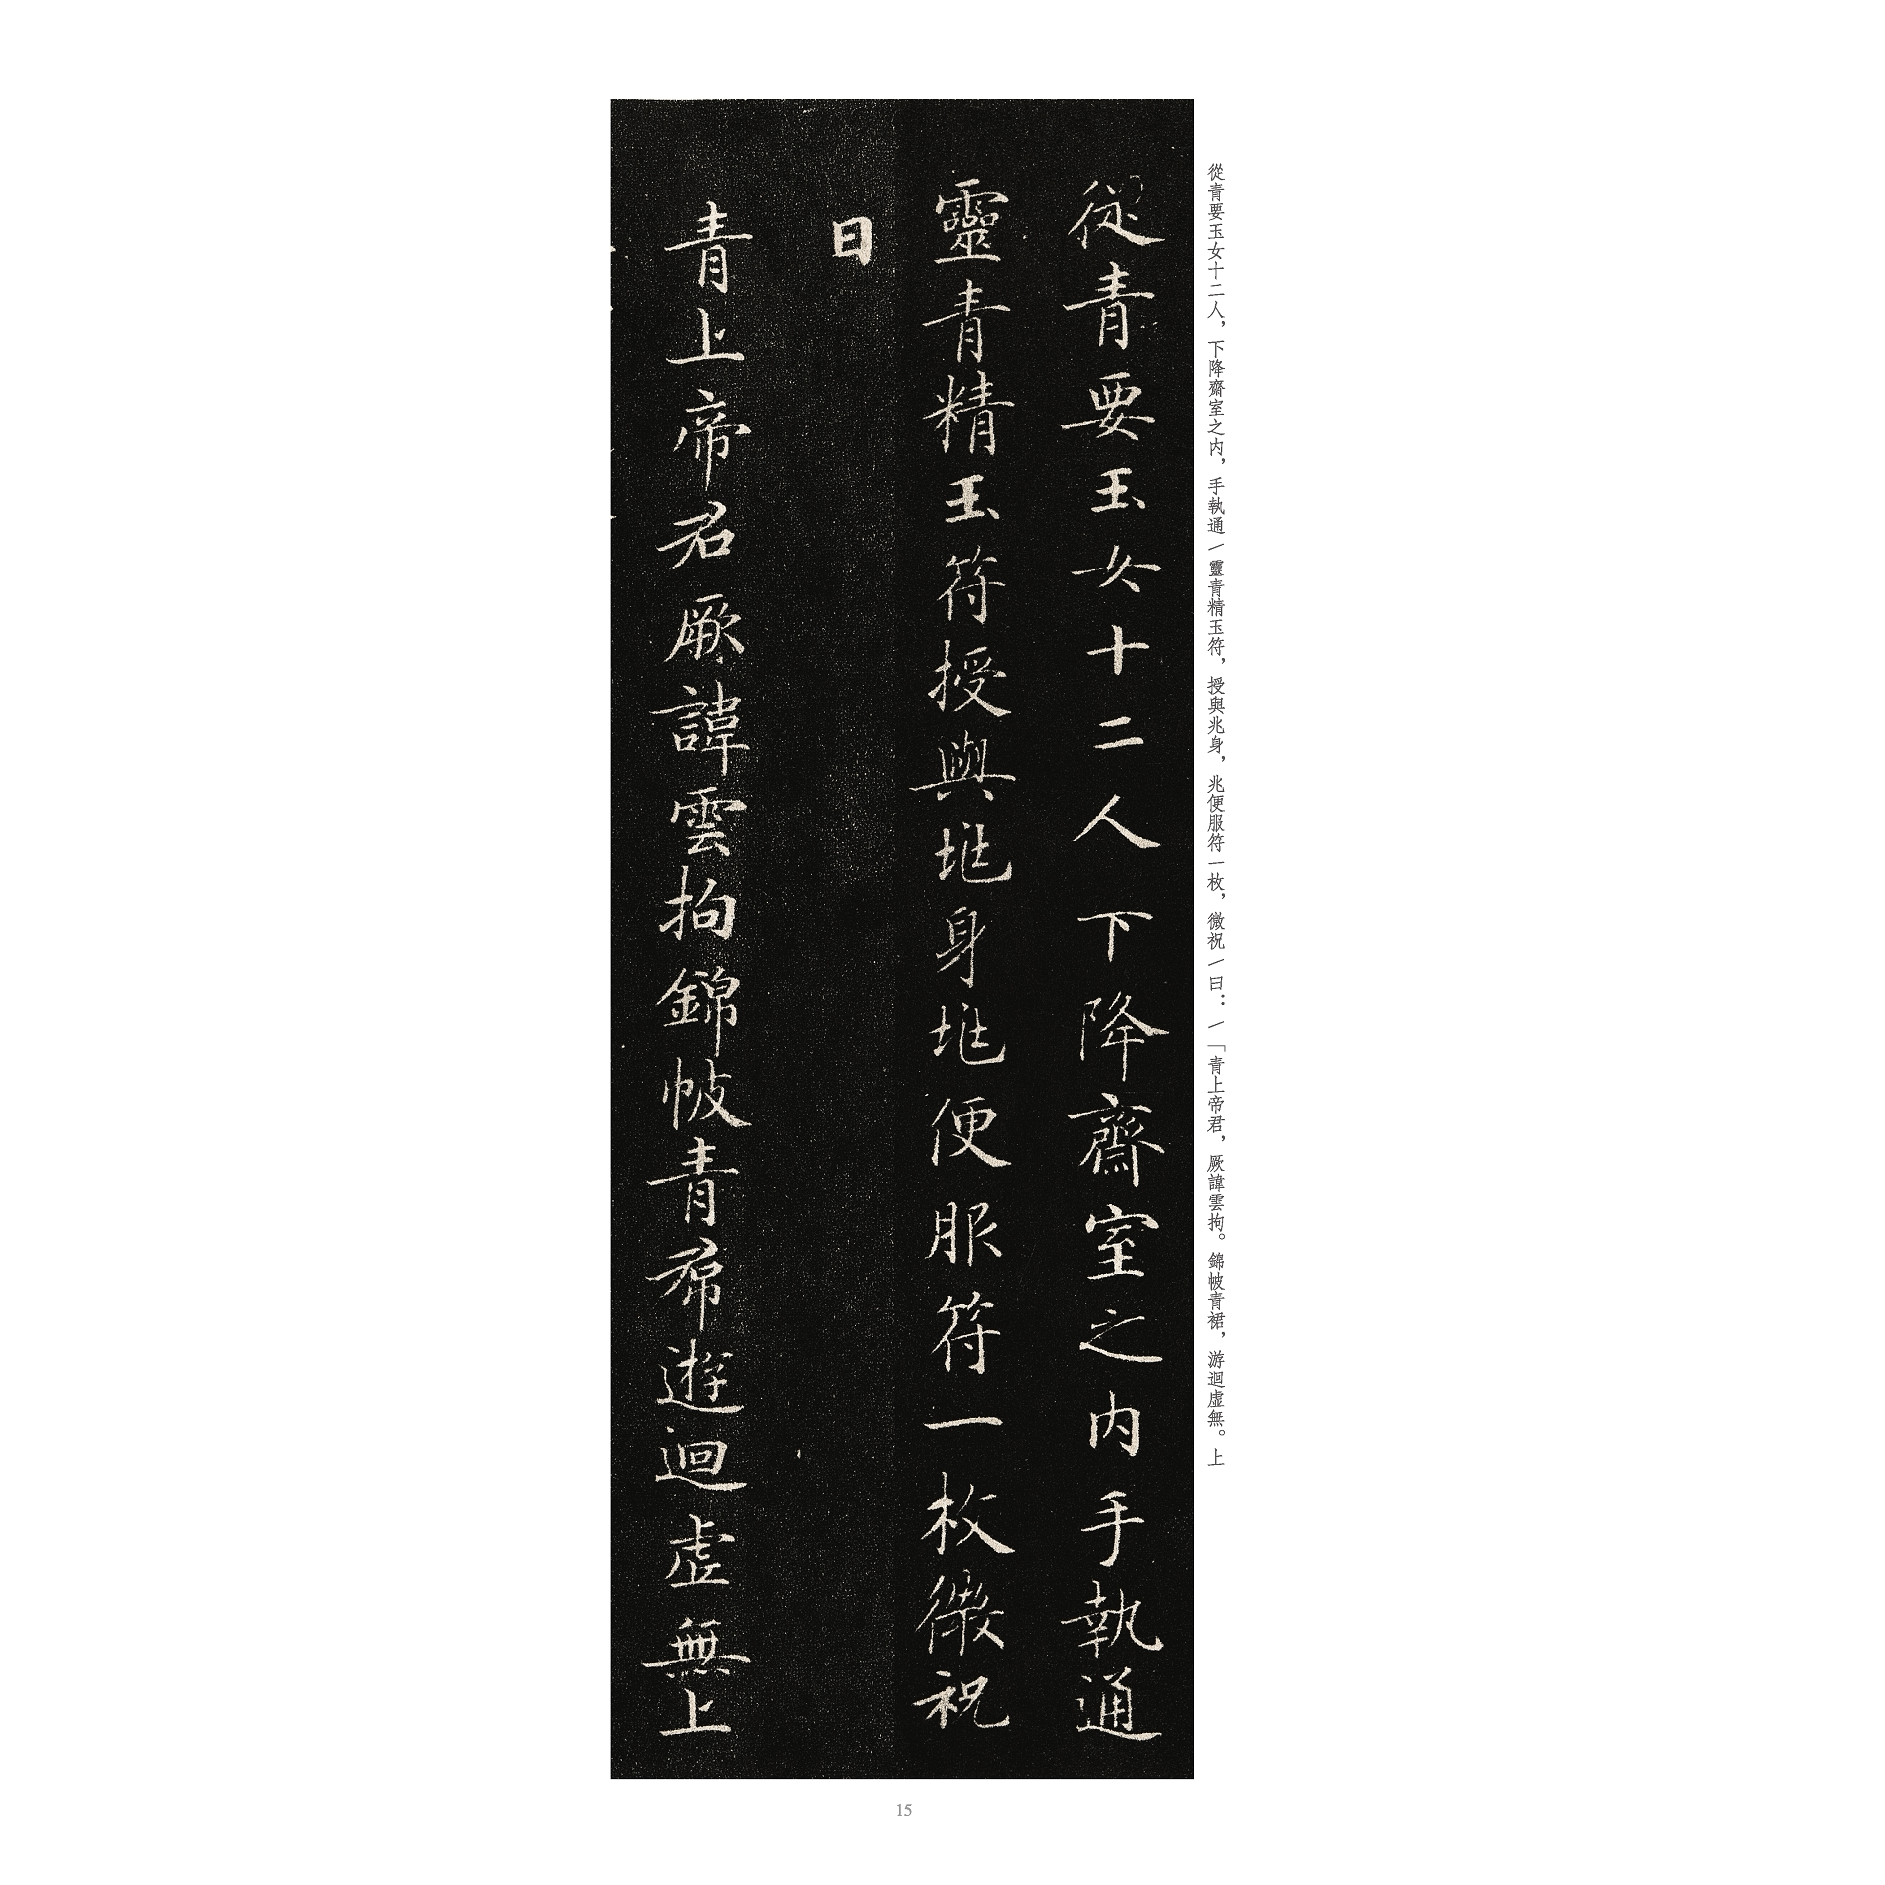 從青要玉女十二人，下降齋室之内，手執通/靈青精玉符，授與兆身，兆便服符一枚，微祝/曰：/「青上帝君，厥諱雲拘。錦帔青裙，游迴虛無。上
從青要玉女十二人下降齋室之内手執通
靈青精玉符授與垗身垗便服符一枚微祝
曰
青上帝君厥諱雲拘錦帔青帬遊迴虛無上
15